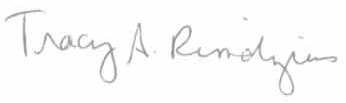 Tracy A. Rimdzius